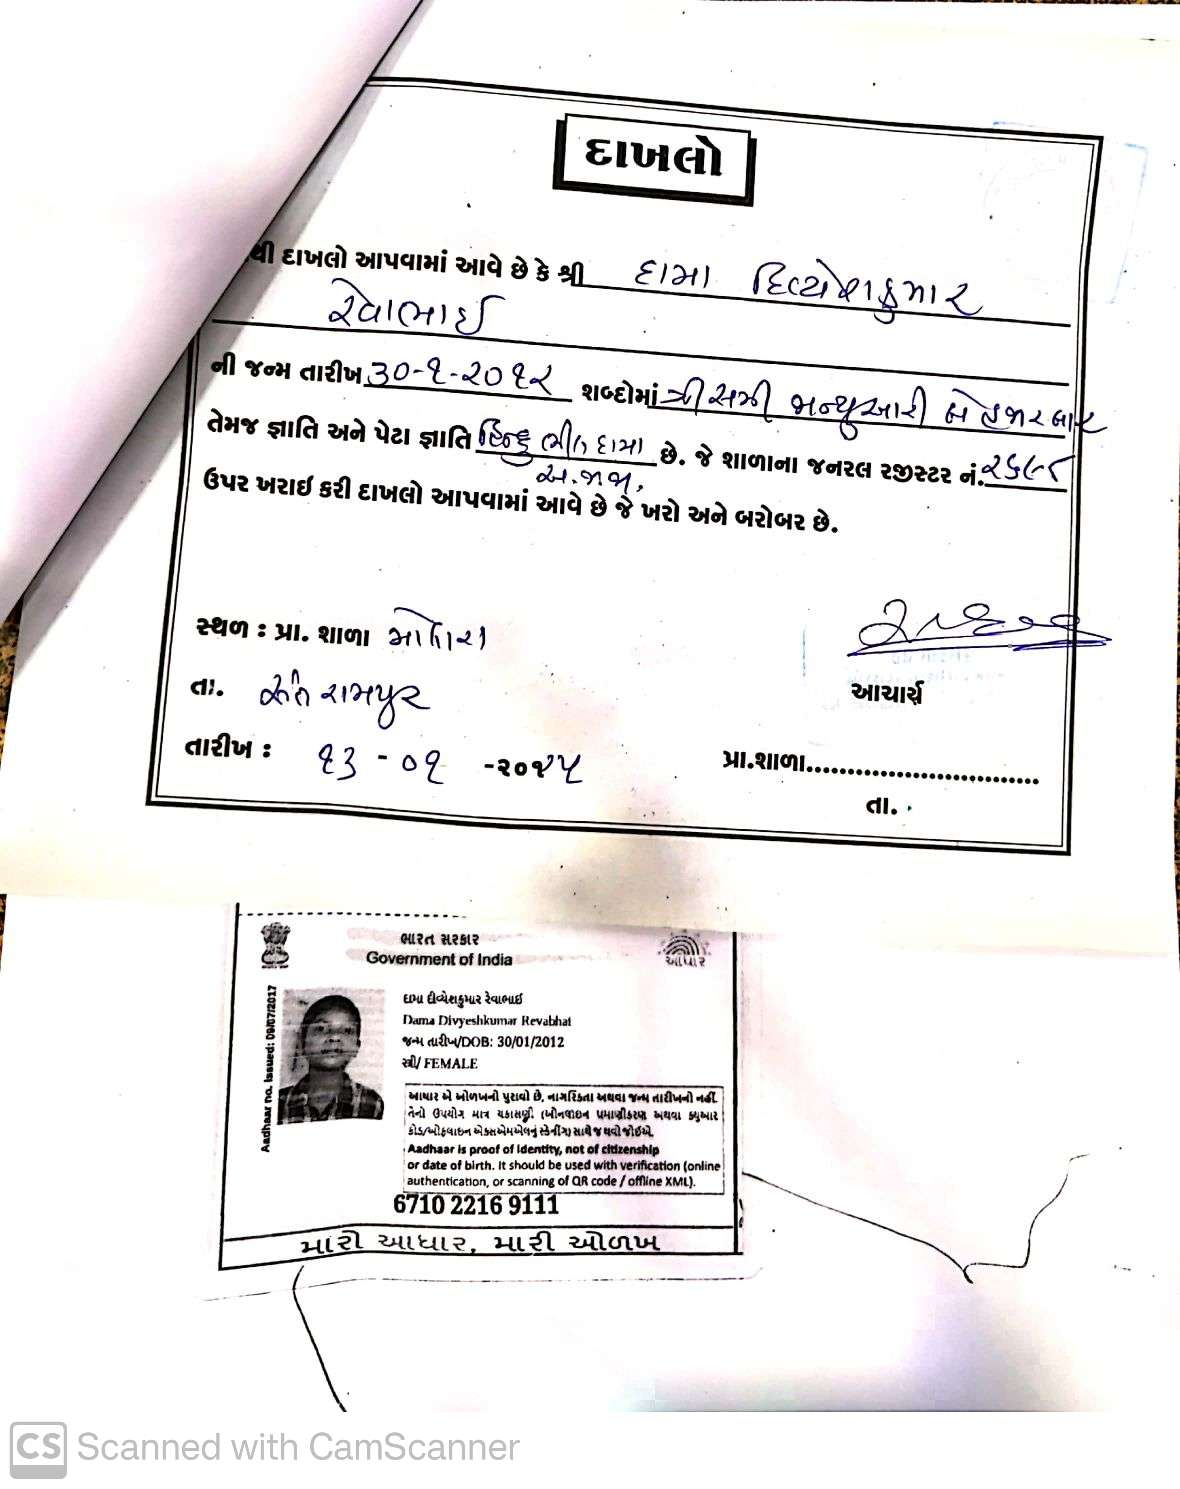 દાખલો
થી દાખલો આપવામાં આવે છે કે શ્રી દામા દિવ્યેશકુમાર
રેવાભાઈ
ની જન્મ તારીખ ૩૦-૧-૨૦૧૨ શબ્દોમાં ત્રીસમી જાન્યુઆરી બે હજાર બાર
તેમજ જ્ઞાતિ અને પેટા જ્ઞાતિ હિન્દુ ભીલ દામા છે. જે શાળાના જનરલ રજીસ્ટર નં.
અ.જ.જા,
ઉપર ખરાઇ કરી દાખલો આપવામાં આવે છે જે ખરો અને બરોબર છે.
સ્થળ : પ્રા. શાળા
તા. સંતરામપુર
આચાર્ય
તારીખ : ૧૩ - ૦૧ -૨૦૨૫
પ્રા.શાળા
તા.
ભારત સરકાર
Government of India
આધાર
Aadhaar no. Issued: 09/07/2017
દામા દીવ્યેશકુમાર રેવાભાઈ
Dama Divyeshkumar Revabhai
જન્મ તારીખ/DOB: 30/01/2012
સ્ત્રી/ FEMALE
આધાર એ ઓળખનો પુરાવો છે, નાગરિકતા અથવા જન્મ તારીખનો નહીં.
તેનો ઉપયોગ માત્ર ચકાસણી (ઓનલાઇન પ્રમાણીકરણ અથવા ક્યુઆર
કોડ/ઓફલાઇન એક્સએમએલનું સ્કેનીંગ) સાથે જ થવો જોઈએ.
Aadhaar is proof of identity, not of citizenship
or date of birth. It should be used with verification (online
authentication, or scanning of QR code / offline XML).
6710 2216 9111
મારો આધાર, મારી ઓળખ
CS Scanned with CamScanner